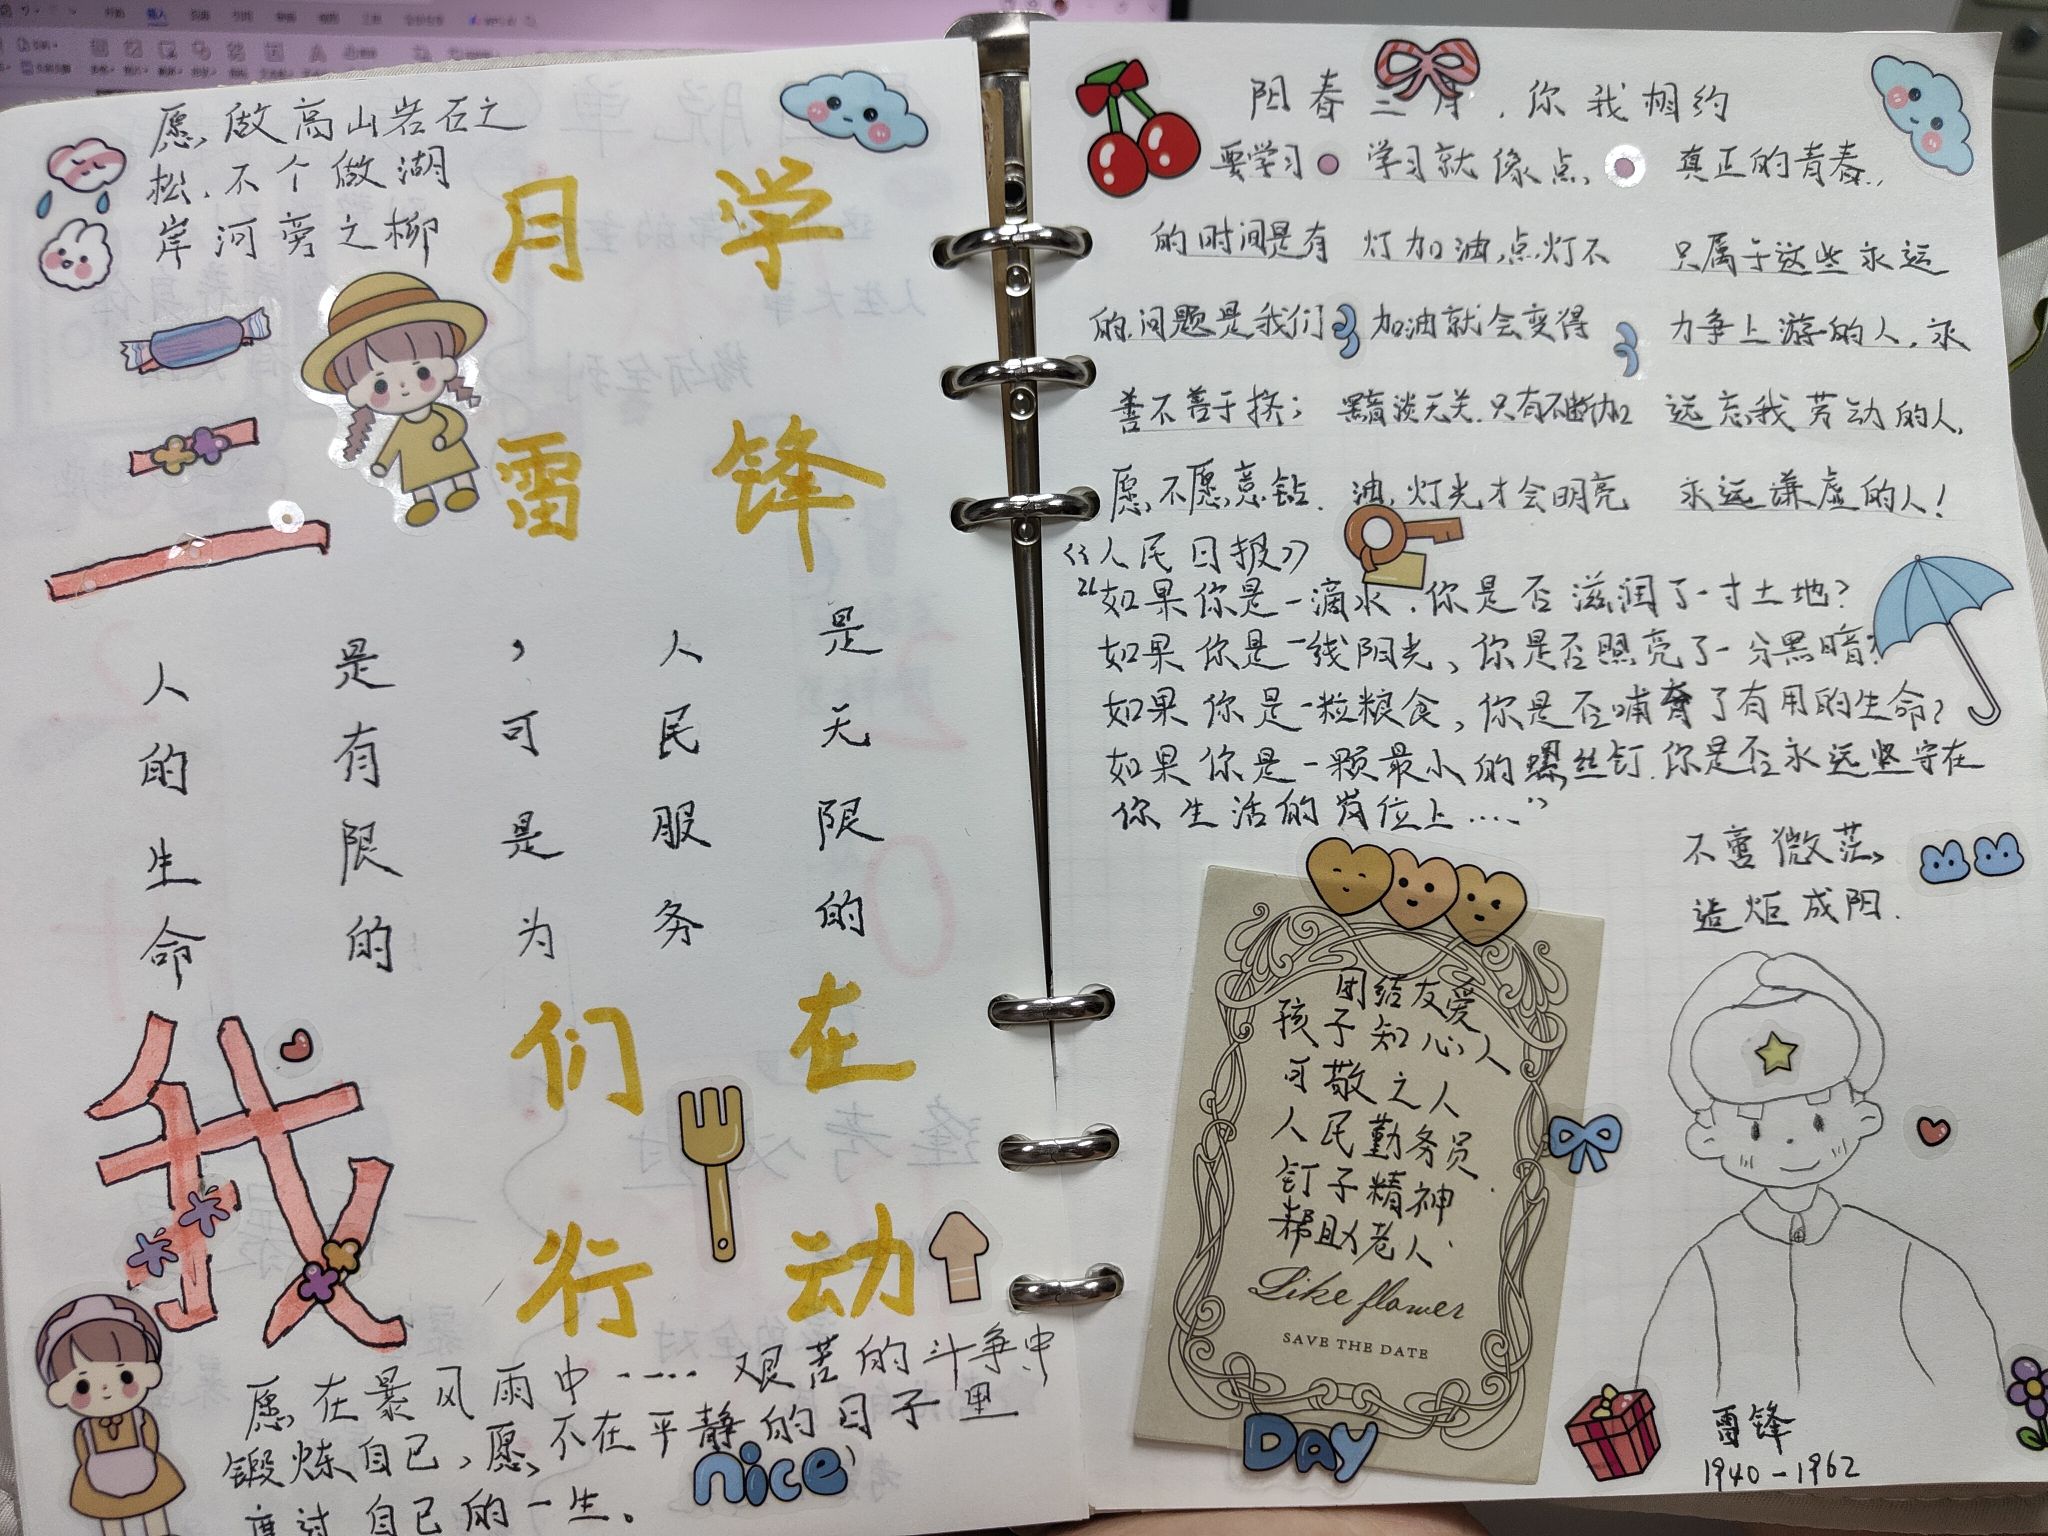 愿做高山岩石之
松，不个做湖
岸河旁之柳
三月学
雷锋
人的生命
是有限的
，可是为
人民服务
是无限的
我们在
行动
愿在暴风雨中····艰苦的斗争中
锻炼自己，愿不在平静的日子里
度过自己的一生。
nice
阳春三月，你我相约
要学习
的时间是有
的，问题是我们
善不善于挤；
愿不愿意钻．
学习就像点
灯加油，点灯不
加油就会变得
黯淡无关．只有不断加
油，灯光才会明亮
真正的青春，
只属于这些永远
力争上游的人，永
远忘我劳动的人，
永远谦虚的人！
《人民日报》
“如果你是一滴水，你是否滋润了一寸土地？
如果你是一线阳光，你是否照亮了一分黑暗？
如果你是一粒粮食，你是否哺育了有用的生命？
如果你是一颗最小的螺丝钉．你是否永远坚守在
你生活的岗位上....”
不啻微茫，
造炬成阳．
团结友爱
孩子知心人
可敬之人
人民勤务员
钉子精神
帮助老人
Like flower
SAVE THE DATE
DAY
雷锋
1940-1962